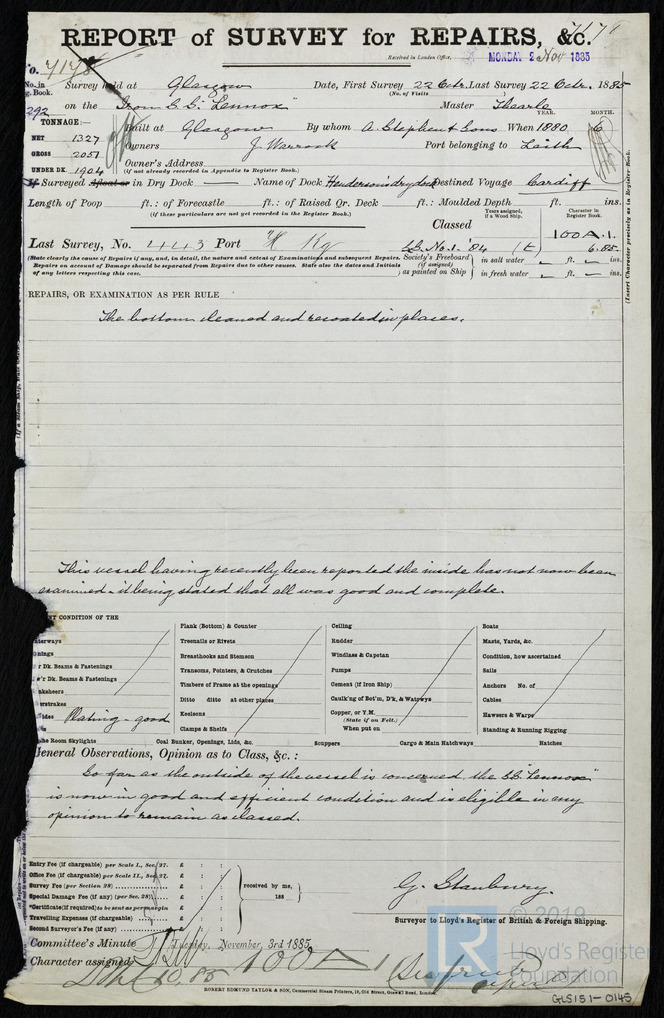 REPORT of SURVEY for REPAIRS, &c.
7171
Received in London Office, MONDAY 2 Nov 1885
No. 7178
No. in Reg. Book. Survey held at Glasgow Date, First Survey 22 Octr. Last Survey 22 Octr. 1885
(No. of Visits )
292 on the Iron S.S. "Lennox" Master Thearle
YEAR. MONTH.
TONNAGE:— Built at Glasgow By whom A. Stephen & Sons When 1880 6
NET 1327
GROSS 2051 Owners J. Warrack Port belonging to Leith
UNDER DK. 1904 Owner's Address
(if not already recorded in Appendix to Register Book.)
If Surveyed Afloat or in Dry Dock — Name of Dock Henderson's dry dock Destined Voyage Cardiff
Length of Poop ft.: of Forecastle ft.: of Raised Qr. Deck ft.: Moulded Depth ft. ins.
(if these particulars are not yet recorded in the Register Book.)
Classed
Years assigned, if a Wood Ship.
Character in Register Book.
100 A. 1.
Last Survey, No. 443 Port H Kg S.S. No. 1. '84 (t) 6.85
(State clearly the cause of Repairs if any, and, in detail, the nature and extent of Examinations and subsequent Repairs.
Repairs on account of Damage should be separated from Repairs due to other causes. State also the dates and Initials
of any letters respecting this case.
Society's Freeboard (if assigned) as painted on Ship
in salt water — ft. — ins.
in fresh water — ft. — ins.
(Insert Character precisely as in Register Book.)
REPAIRS, OR EXAMINATION AS PER RULE
The bottom cleaned and recoated in places.
This vessel having recently been reported the inside has not now been
examined - it being stated that all was good and complete.
ENT CONDITION OF THE
aterways
Dk. Beams & Fastenings
r Dk. Beams & Fastenings
nksheers
erstrakes
ides Plating - good
ne Room Skylights
Plank (Bottom) & Counter
Treenails or Rivets
Breasthooks and Stemson
Transoms, Pointers, & Crutches
Timbers of Frame at the openings
Ditto ditto at other places
Keelsons
Clamps & Shelfs
Coal Bunker, Openings, Lids, &c.
Ceiling
Rudder
Windlass & Capstan
Pumps
Cement (if Iron Ship)
Caulk'ng of Bot'm, D'k, & Waterways
Copper, or Y.M.
(State if on Felt.)
When put on
Scuppers
Cargo & Main Hatchways
Boats
Masts, Yards, &c.
Condition, how ascertained
Sails
Anchors No. of
Cables
Hawsers & Warps
Standing & Running Rigging
Hatches
General Observations, Opinion as to Class, &c.:
So far as the outside of the vessel is concerned the SS. "Lennox"
is now in good and efficient condition and is eligible in my
opinion to remain as classed.
Entry Fee (if chargeable) per Scale I., Sec. 27. £ : :
Office Fee (if chargeable) per Scale II., Sec. 27. £ : :
Survey Fee (per Section 28) £ : :
Special Damage Fee (if any) (per Sec. 28) £ : :
*Certificate (if required) to be sent as per margin
Travelling Expenses (if chargeable) £ : :
Second Surveyor's Fee (if any) £ : :
received by me,
188
G. Stanbury.
Surveyor to Lloyd's Register of British & Foreign Shipping.
Committee's Minute Tuesday, November, 3rd 1885.
Character assigned 100 A 1
10.85
ROBERT EDMUND TAYLOR & SON, Commercial Steam Printers, 19, Old Street, Goswell Road, London.
© 2019
LR
Lloyd's Register
Foundation
GLS151-0145